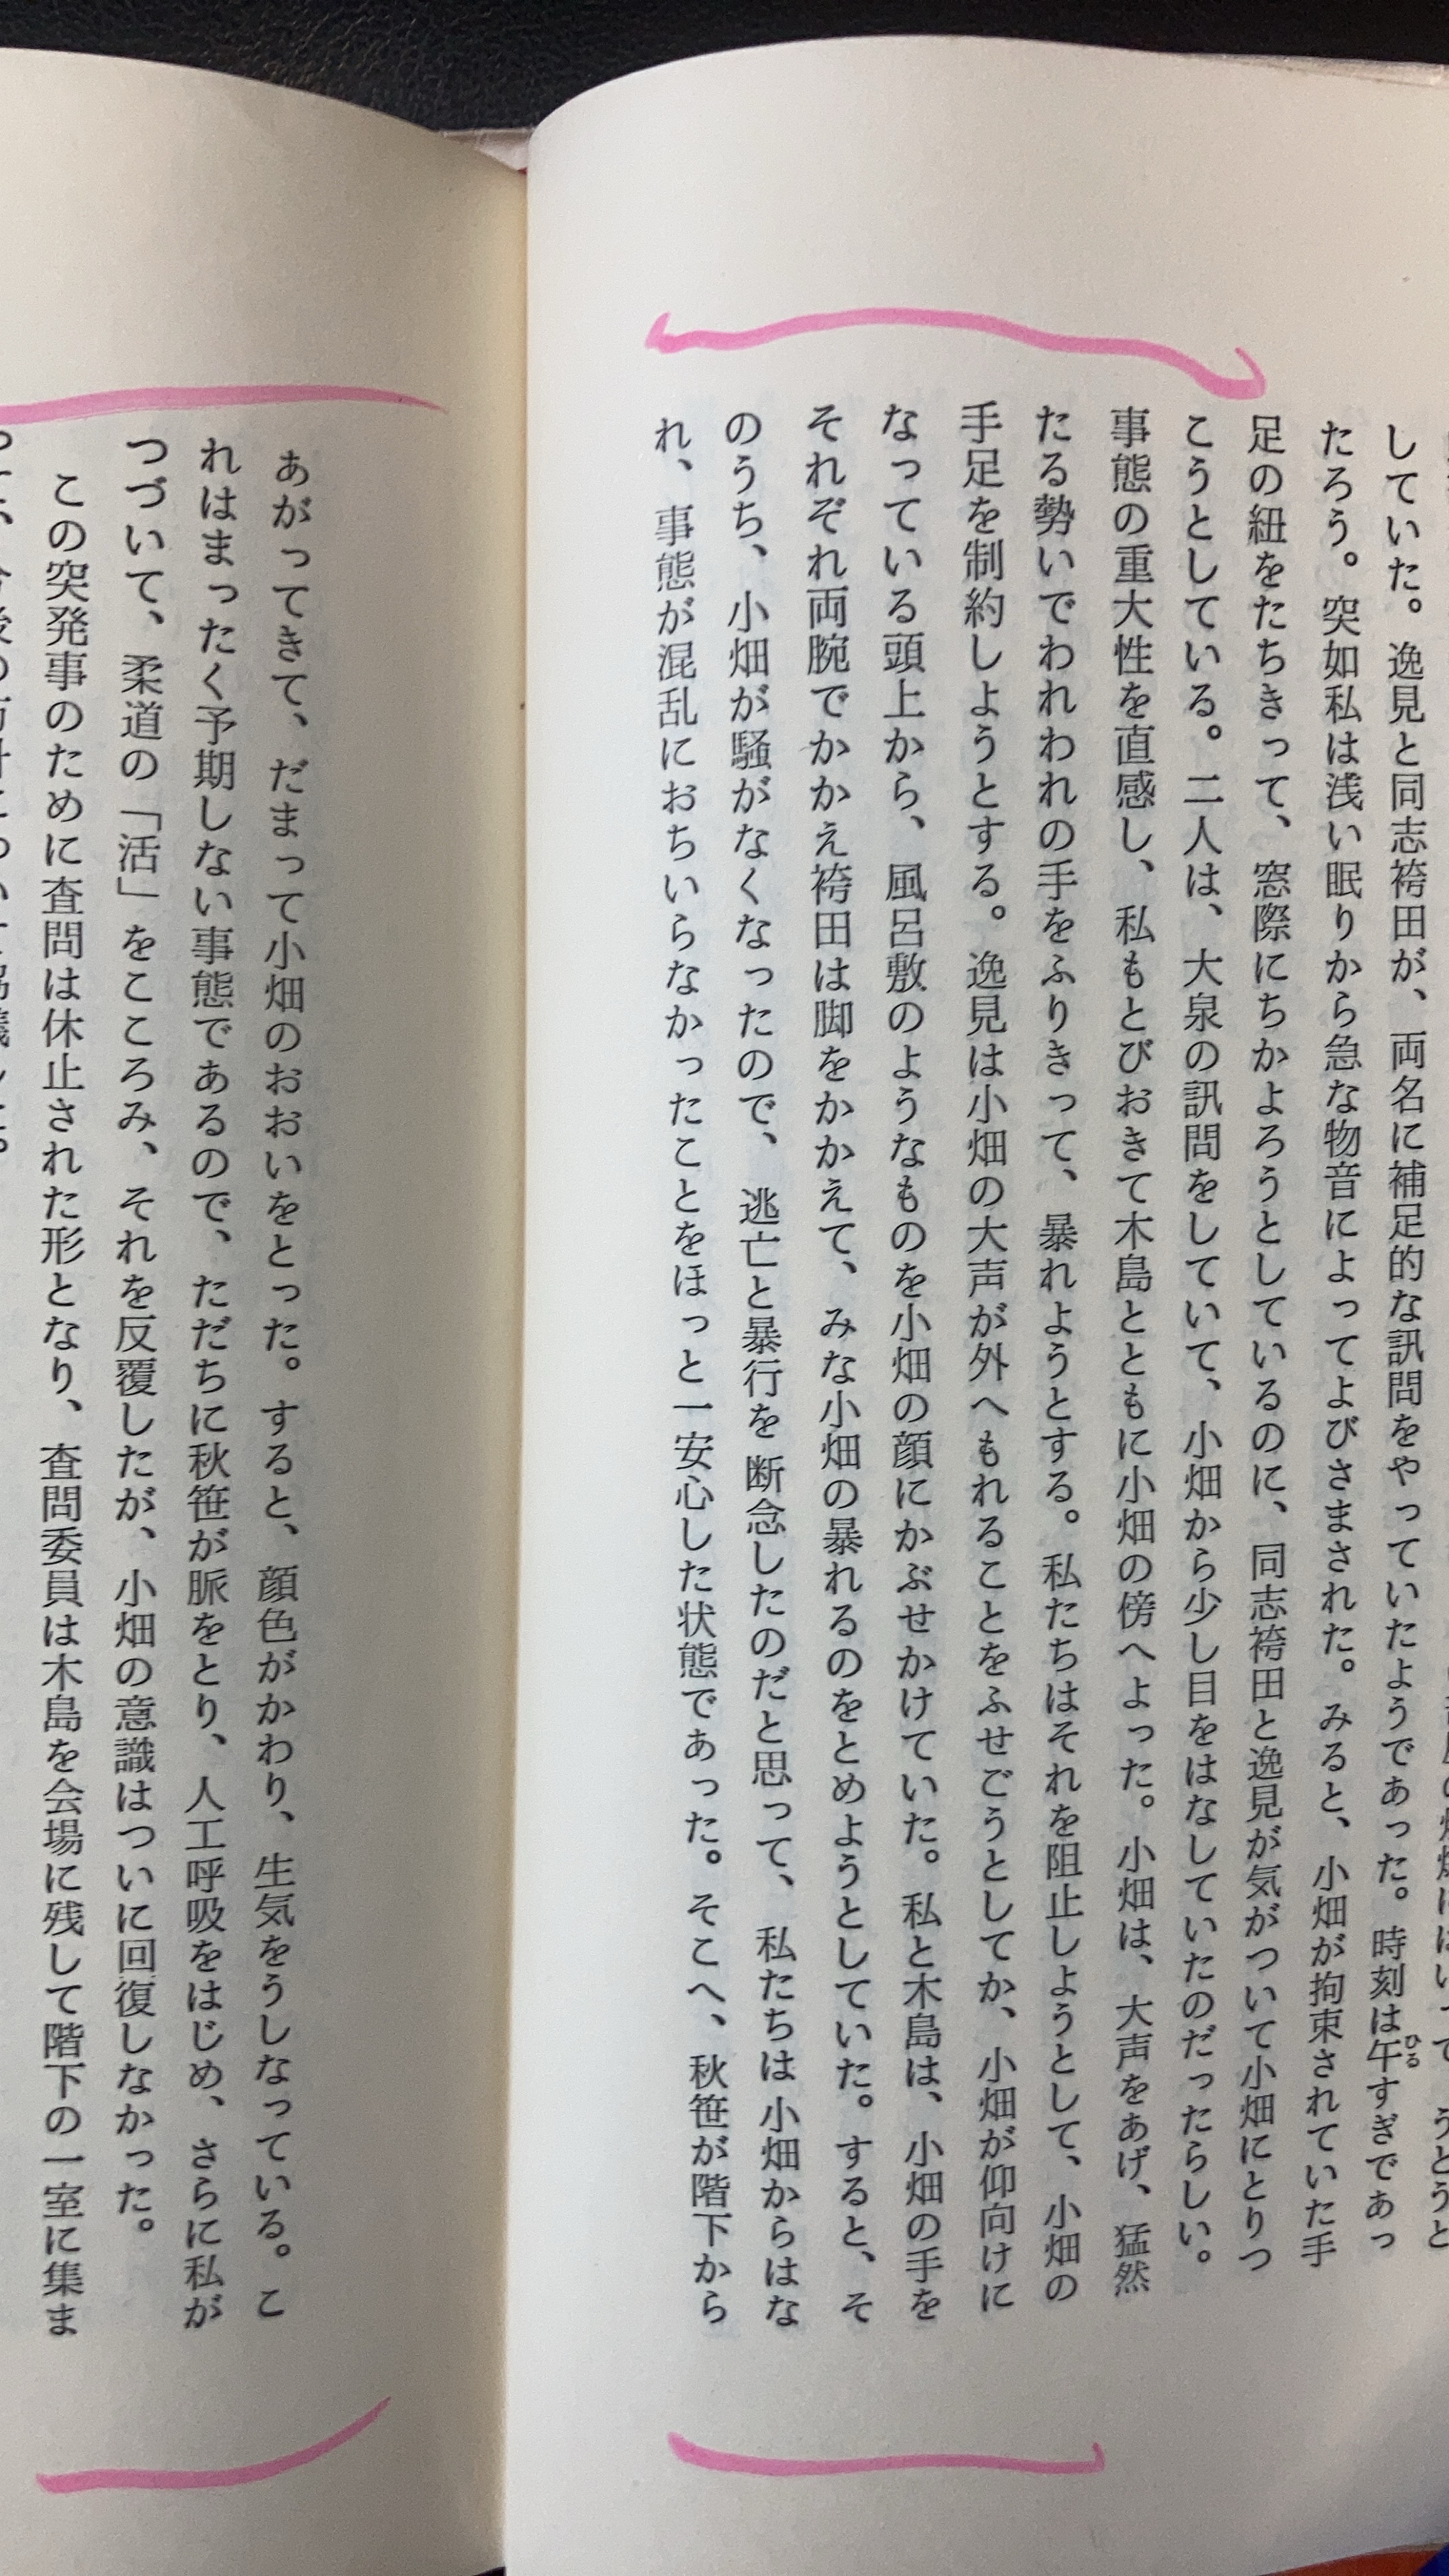 していた。逸見と同志袴田が、両名に補足的な訊問をやっていたようであった。時刻は午すぎであっ
ひる
たろう。突如私は浅い眠りから急な物音によってよびさまされた。みると、小畑が拘束されていた手
足の紐をたちきって、窓際にちかよろうとしているのに、同志袴田と逸見が気がついて小畑にとりつ
こうとしている。二人は、大泉の訊問をしていて、小畑から少し目をはなしていたのだったらしい。
事態の重大性を直感し、私もとびおきて木島とともに小畑の傍へよった。小畑は、大声をあげ、猛然
たる勢いでわれわれの手をふりきって、暴れようとする。私たちはそれを阻止しようとして、小畑の
手足を制約しようとする。逸見は小畑の大声が外へもれることをふせごうとしてか、小畑が仰向けに
なっている頭上から、風呂敷のようなものを小畑の顔にかぶせかけていた。私と木島は、小畑の手を
それぞれ両腕でかかえ袴田は脚をかかえて、みな小畑の暴れるのをとめようとしていた。すると、そ
のうち、小畑が騒がなくなったので、逃亡と暴行を断念したのだと思って、私たちは小畑からはな
れ、事態が混乱におちいらなかったことをほっと一安心した状態であった。そこへ、秋笹が階下から
あがってきて、だまって小畑のおおいをとった。すると、顔色がかわり、生気をうしなっている。こ
れはまったく予期しない事態であるので、ただちに秋笹が脈をとり、人工呼吸をはじめ、さらに私が
つづいて、柔道の「活」をこころみ、それを反覆したが、小畑の意識はついに回復しなかった。
この突発事のために査問は休止された形となり、査問委員は木島を会場に残して階下の一室に集ま